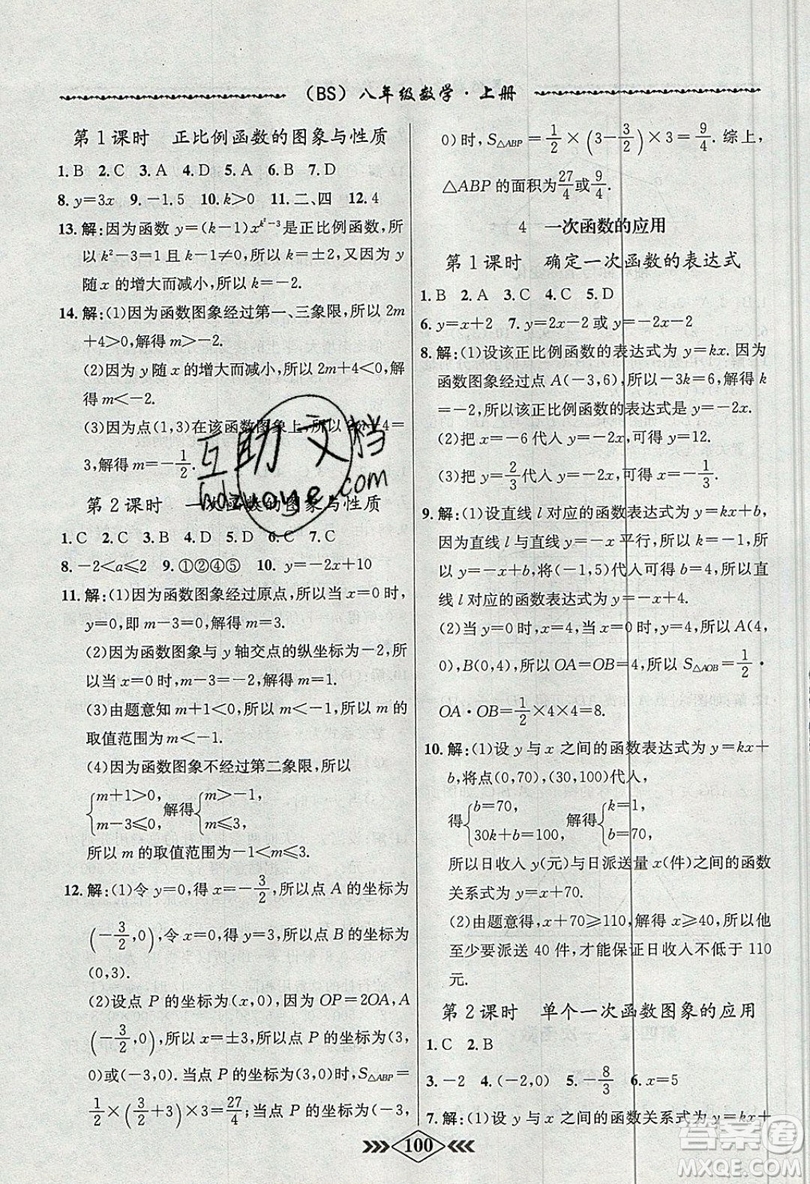 (BS) 八年级数学·上册
第1课时 正比例函数的图象与性质
1.B 2.C 3.A 4.D 5.A 6.D 7.B
8.y=3x 9.-1,5 10.k>0 11.二、四 12.4
13.解:因为函数y=(k-1)x^{k²-3}是正比例函数,所
以k²-3=1且k-1≠0,所以k=±2,又因为y
随x的增大而减小,所以k=-2.
14.解:(1)因为函数图象经过第一、三象限,所以2m
+4>0,解得m>-2.
(2)因为y随x的增大而减小,所以2m+4<0,解
得m<-2.
(3)因为点(1,3)在该函数图象上,所以2m+4=
3,解得m=-1/2.
第2课时 一次函数的图象与性质
1.C 2.C 3.D 4.A 5.C 6.B 7.C
8.-2<a≤2 9.①②④⑤ 10.y=-2x+10
11.解:(1)因为函数图象经过原点,所以当x=0时,
y=0,即m-3=0,解得m=3.
(2)因为函数图象与y轴交点的纵坐标为-2,所
以当x=0时,y=-2,即m-3=-2,解得m=1.
(3)由题意知m+1>0,解得m>-1,所以m的
取值范围为m>-1.
(4)因为函数图象不经过第二象限,所以
{m+1>0, m-3≤0, 解得{m>-1, m≤3,
所以m的取值范围为-1<m≤3.
12.解:(1)令y=0,得x=-3/2,所以点A的坐标为
(-3/2,0),令x=0,得y=3,所以点B的坐标为
(0,3).
(2)设点P的坐标为(x,0),因为OP=2OA,A
(-3/2,0),所以x=±3,所以点P的坐标为(3,
0)或(-3,0).当点P的坐标为(3,0)时,S△ABP=
1/2×(3/2+3)×3=27/4;当点P的坐标为(-3,
0)时,S△ABP=1/2×(3-3/2)×3=9/4.综上,
△ABP的面积为27/4或9/4.
4 一次函数的应用
第1课时 确定一次函数的表达式
1.B 2.A 3.C 4.C 5.D
6.y=x+2 7.y=2x-2或y=-2x-2
8.解:(1)设该正比例函数的表达式为y=kx.因为
函数图象过点A(-3,6),所以-3k=6,解得k=
-2,所以该正比例函数的表达式为y=-2x.
(2)把x=-6代入y=-2x,可得y=12.
(3)把y=2/3代入y=-2x,可得x=-1/3.
9.解:(1)设直线l对应的函数表达式为y=kx+b,
因为直线l与直线y=-x平行,所以k=-1,
所以y=-x+b,代入(-1,5),解得b=4,所以
直线l对应的函数表达式为y=-x+4.
(2)当y=0时,-x+4=0,解得x=4,所以A(4,
0),B(0,4),所以OA=OB=4,所以S△AOB=1/2·
OA·OB=1/2×4×4=8.
10.解:(1)设y与x之间的函数表达式为y=kx+
b,将点(0,70),(30,100)代入,
得{b=70, 30k+b=100, 解得{k=1, b=70,
所以日收入y(元)与日派送量x(件)之间的函数
关系式为y=x+70.
(2)由题意,得x+70≥110,解得x≥40,所以他
至少要派送40件,才能保证日收入不少于110
元.
第2课时 单个一次函数图象的应用
1.C 2.B
3.-2 4.(2,0) 5.-8/3 6.x=5
7.解:(1)设y与x之间的函数关系式为y=kx+
100
互助文档
hdzuoye.com
答案圈
MXQE.COM